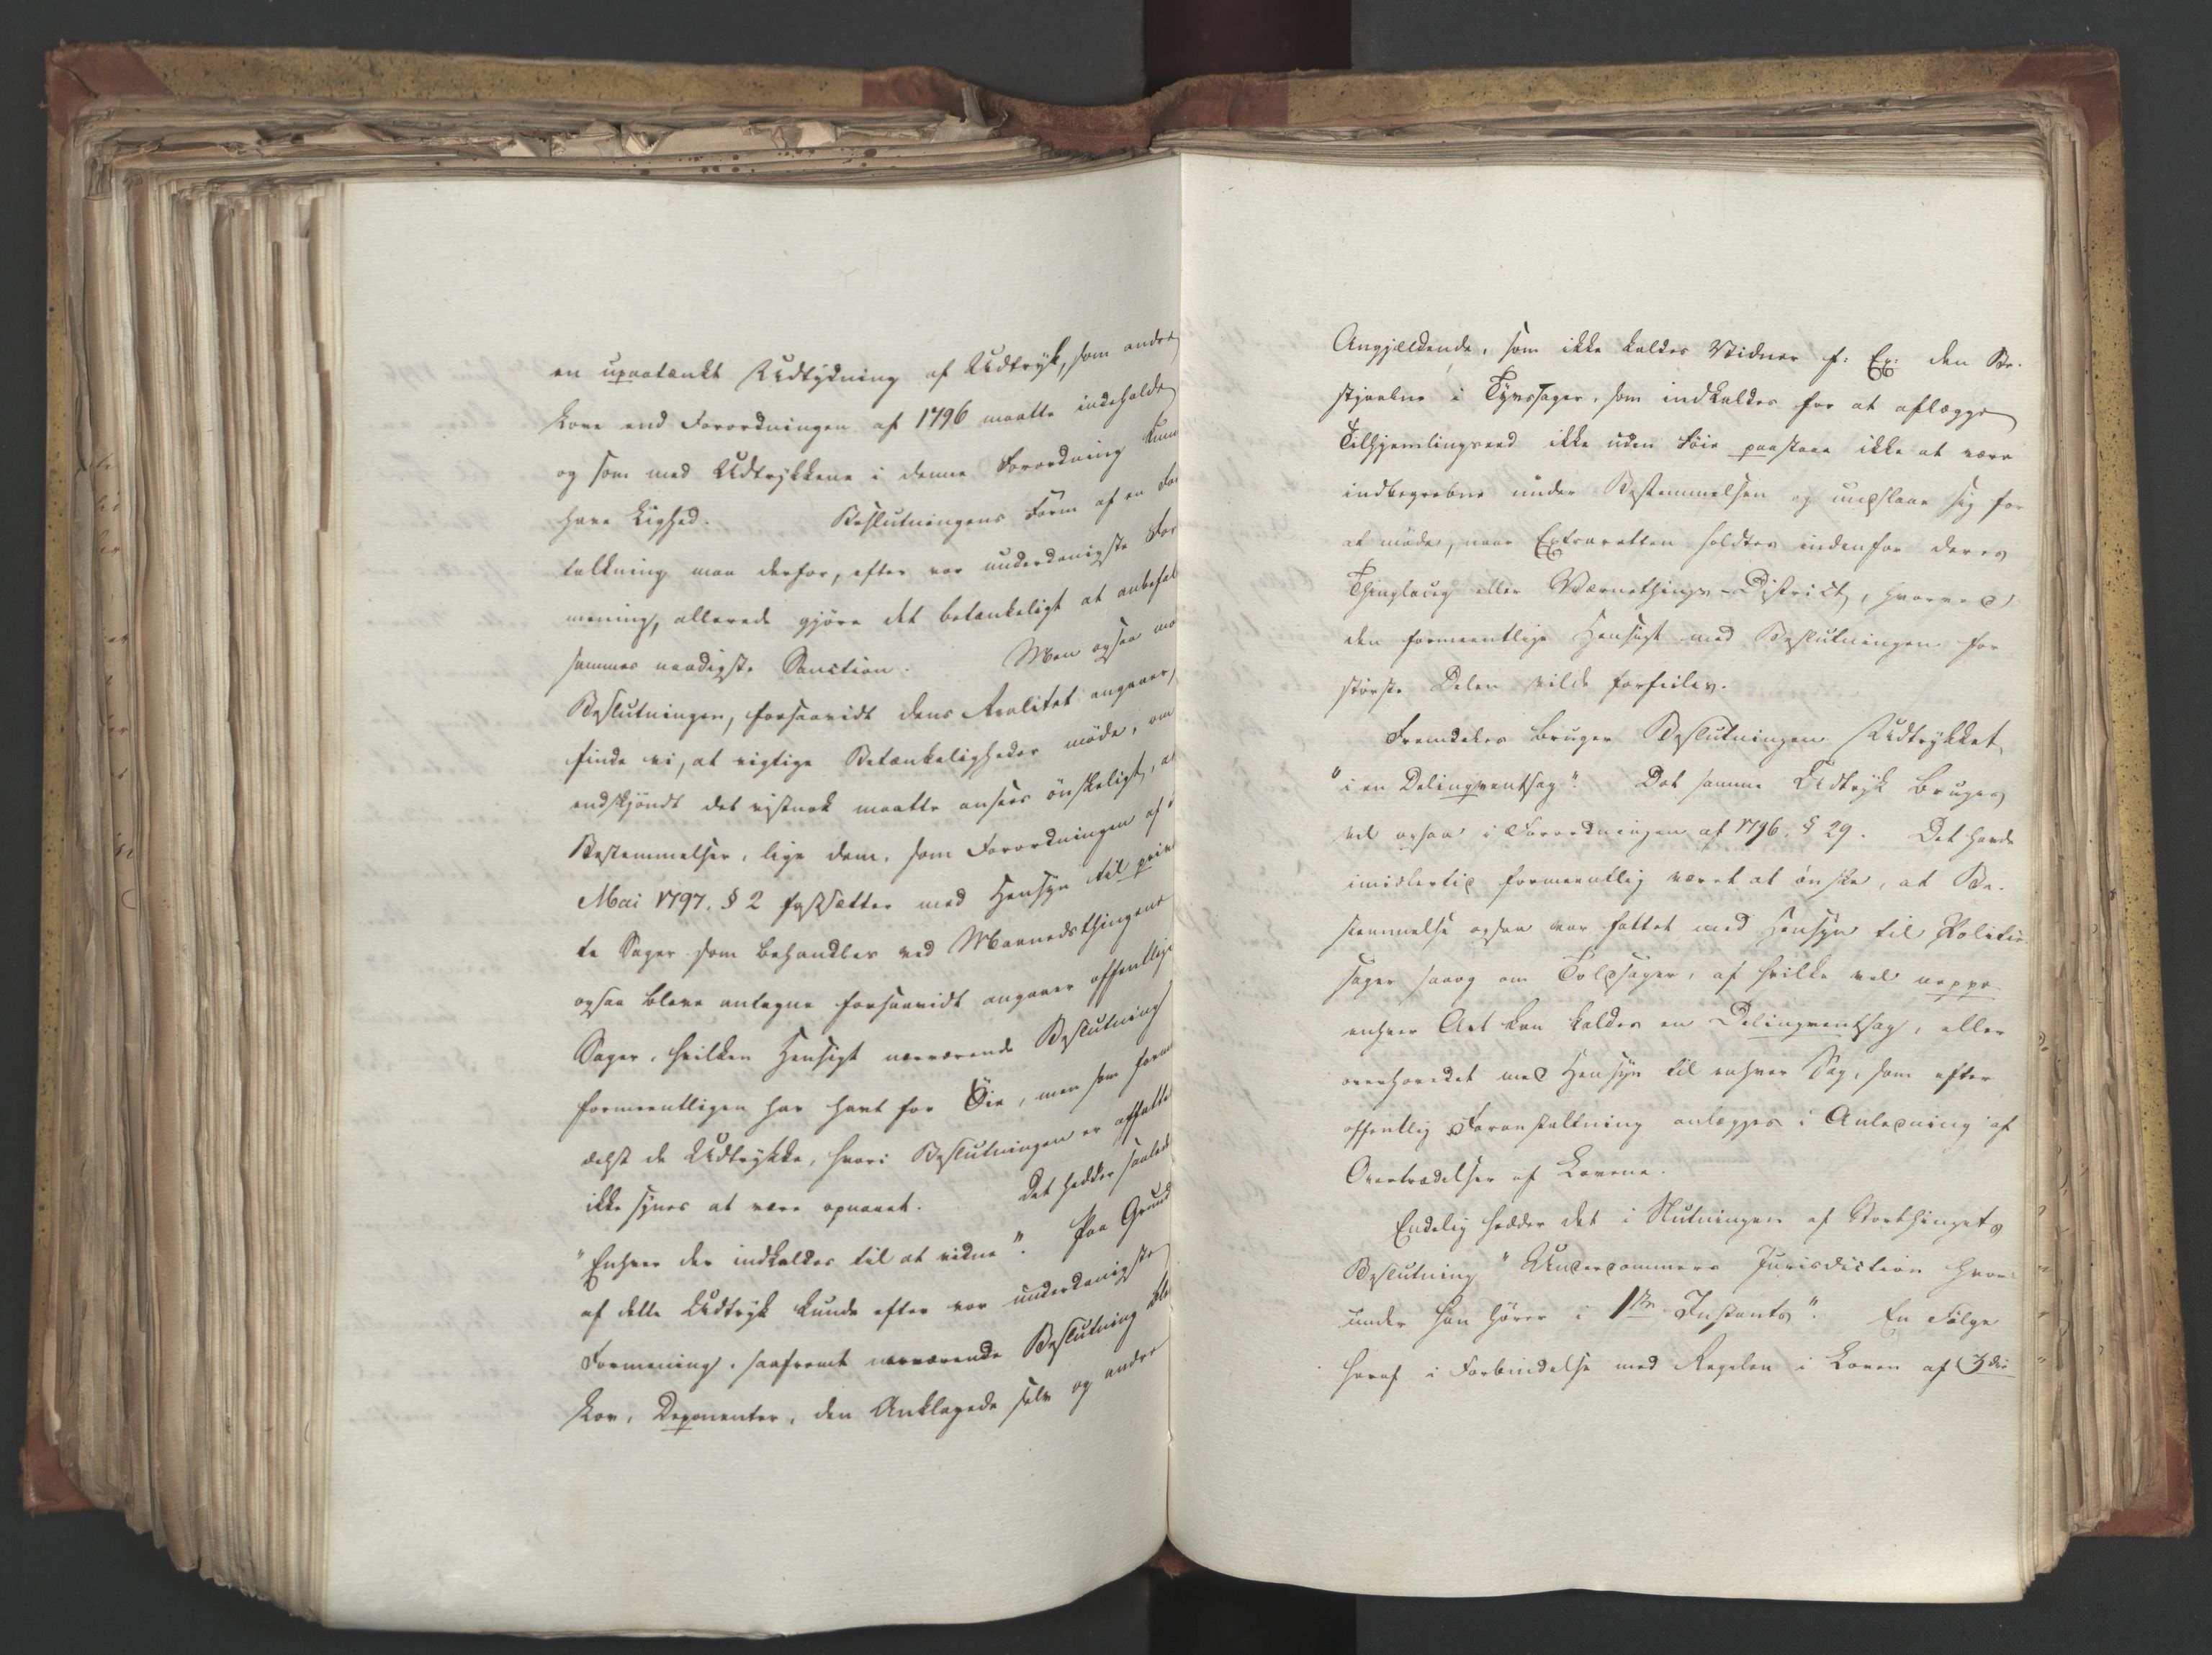 en upaatænkt Udtydning af Udtryk, som andre
Love end Forordningen af 1796 maatte indeholde
og som med Udtrykkene i denne Forordning kun
have Lighed. Beslutningens Form af en For
tolkning maa derfor, efter vor underdanigste For
mening, allerede gjøre det betænkeligt at anbefal
sammes naadigste Sanction. Men ogsaa mo
Beslutningen, forsaavidt dens Realitet angaaer,
finde vi, at vigtige Betænkeligheder møde, om
endskjøndt det vistnok maatte ansees ønskeligt, at
Bestemmelser, lige dem, som Forordningen af
Mai 1797. § 2 fastsætter med Hensyn til priv
te Sager som behandles ved Maanedsthingene
ogsaa bleve antagne forsaavidt angaaer offentlige
Sager, hvilken Hensigt nærværende Beslutning
formeentligen har havt for Öie, men som form
delst de Udtrykke, hvori Beslutningen er affatte
ikke synes at være opnaaet. Det hedder saaled
"Enhver der indkaldes til at vidne". Paa Grund
af dette Udtryk kunde efter vor underdanigste
Formening, saafremt nærværende Beslutning blev
Lov, Deponenter, den Anklagede selv og andre
Angjældende, som ikke kaldes Vidner f: Ex: den Be-
stjaalne i Tyvssager, som indkaldes for at aflægge
Tilhjemlingseed ikke uden Föie paastaae ikke at være
indbegrebne under Bestemmelsen og undslaae sig for
at møde, naar Extraretten holdtes indenfor deres
Thinglaug eller Værnethings-District, hvorved
den formeentlige Hensigt med Beslutningen for
største Delen vilde forfeiles.
Fremdeles bruger Beslutningen Udtrykket
"i en Delinqventsag". Det samme Udtryk bruges
vel ogsaa i Forordningen af 1796. § 29. Det havde
imidlertid formeentlig været at ønske, at Be-
stemmelse ogsaa var fattet med Hensyn til Politie-
sager saaog om Toldsager, af hvilke vel neppe
enhver Art kan kaldes en Delinqventsag, eller
overhovedet med Hensyn til enhver Sag, som efter
offentlig Foranstaltning anlægges i Anledning af
Overtrædelser af Lovene.
Endelig hedder det i Slutningen af Storthingets
Beslutning "Underdommers Jurisdiction hvor-
under han hører i 1ste Instants". En Følge
heraf i Forbindelse med Regelen i Loven af 3die